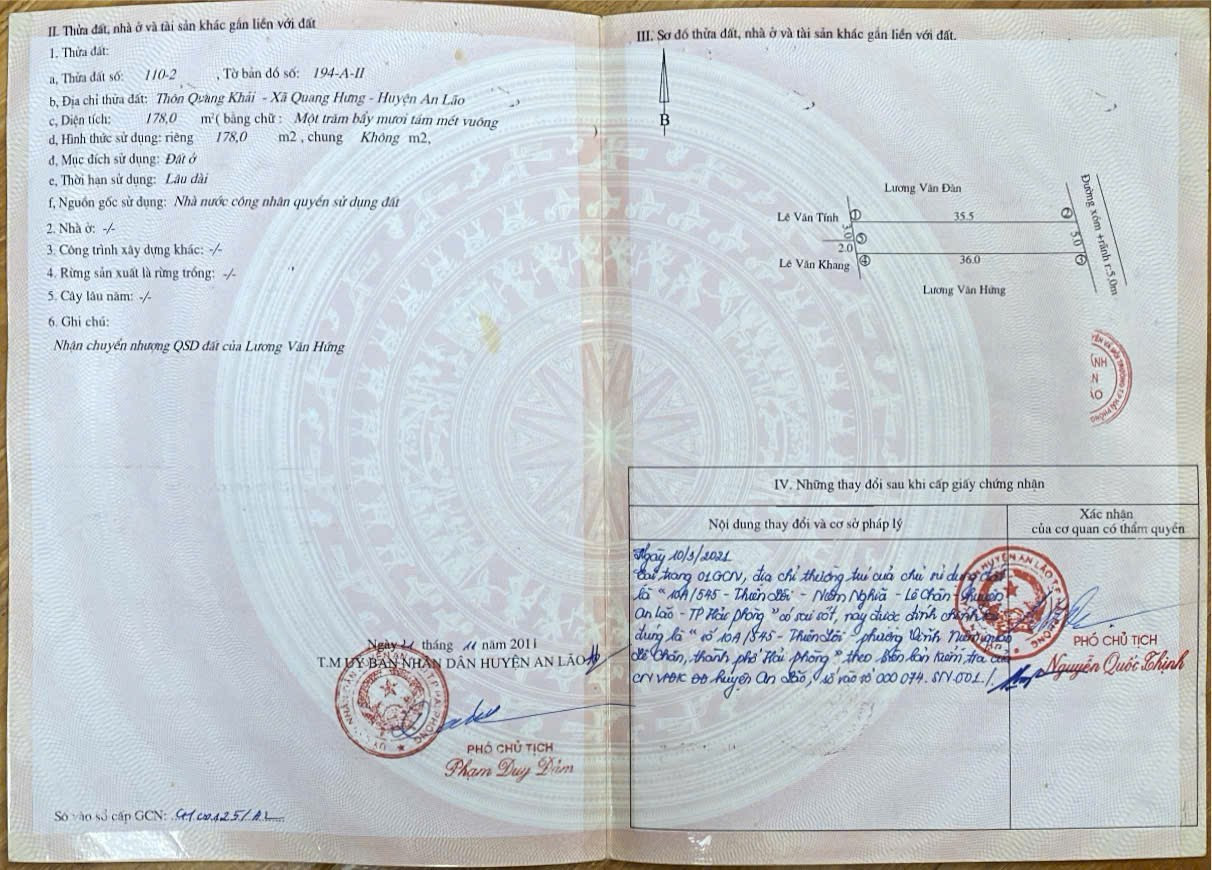 II. Thửa đất, nhà ở và tài sản khác gắn liền với đất
1. Thửa đất:
a, Thửa đất số: 110-2 , Tờ bản đồ số: 194-A-II
b, Địa chỉ thửa đất: Thôn Quang Khải - Xã Quang Hưng - Huyện An Lão
c, Diện tích: 178,0 m² ( bằng chữ : Một trăm bẩy mươi tám mét vuông
d, Hình thức sử dụng: riêng 178,0 m2 , chung Không m2,
đ, Mục đích sử dụng: Đất ở
e, Thời hạn sử dụng: Lâu dài
f, Nguồn gốc sử dụng: Nhà nước công nhân quyền sử dụng đất
2. Nhà ở: -/-
3. Công trình xây dựng khác: -/-
4. Rừng sản xuất là rừng trồng: -/-
5. Cây lâu năm: -/-
6. Ghi chú:
Nhận chuyển nhượng QSD đất của Lương Văn Hứng
Ngày 21 tháng 11 năm 2011
T.M ỦY BAN NHÂN DÂN HUYỆN AN LÃO
PHÓ CHỦ TỊCH
Phạm Duy Đảm
Số vào sổ cấp GCN:
III. Sơ đồ thửa đất, nhà ở và tài sản khác gắn liền với đất.
B
Lương Văn Đàn
Lê Văn Tính 1 35.5 2
3.0 5 5.0
2.0
Lê Văn Khang 4 36.0 3
Lương Văn Hứng
Đường xóm +rãnh r:5.0m
IV. Những thay đổi sau khi cấp giấy chứng nhận
Nội dung thay đổi và cơ sở pháp lý
Xác nhận
của cơ quan có thẩm quyền
Ngày 10/3/2021
Tại trang 01 GCN, địa chỉ thường trú của chủ sử dụng đất
là "10A/545 - Thiên Lôi - Niệm Nghĩa - Lê Chân - huyện
An Lão - TP Hải Phòng" có sai sót, nay được đính chính
đúng là "số 10A/545 - Thiên Lôi - phường Vĩnh Niệm, quận
Lê Chân, thành phố Hải Phòng" theo biên bản kiểm tra của
CN VPĐK ĐĐ huyện An Lão, số vào sổ 000 074. SN.001./.
PHÓ CHỦ TỊCH
Nguyễn Quốc Thịnh